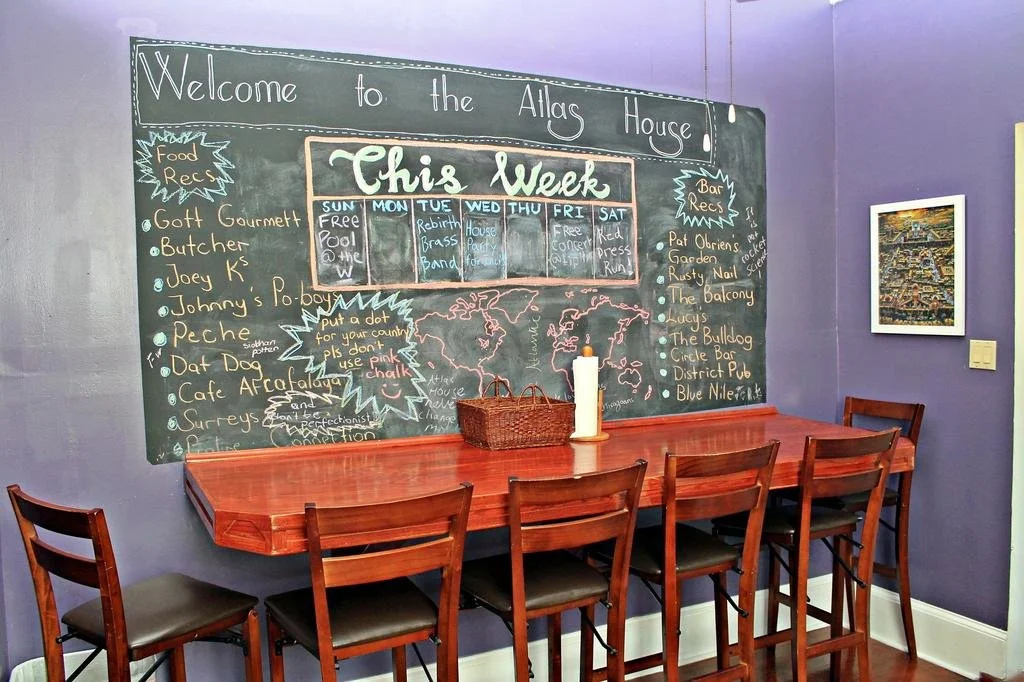 Welcome to the Atlas House
Food
Recs
Gott Gourmett
Butcher
Joey Ks
Johnny's Po-boys
Peche
Dat Dog
Cafe
Surreys
Connection
This Week
SUN MON TUE WED THU FRI SAT
Free
Pool
@ the
W
Rebirth
Brass
Band
House
Party
Free
Concert
Red
Dress
Run!
put a dot
for your country
pls don't
use pink
chalk
and
don't be perfectionist
Atlas
House
Bar
Recs
It is not
rocket
science
Pat Obriens
Garden
Rusty Nail
The Balcony
Lucy's
The Bulldog
Circle Bar
District Pub
Blue Nile